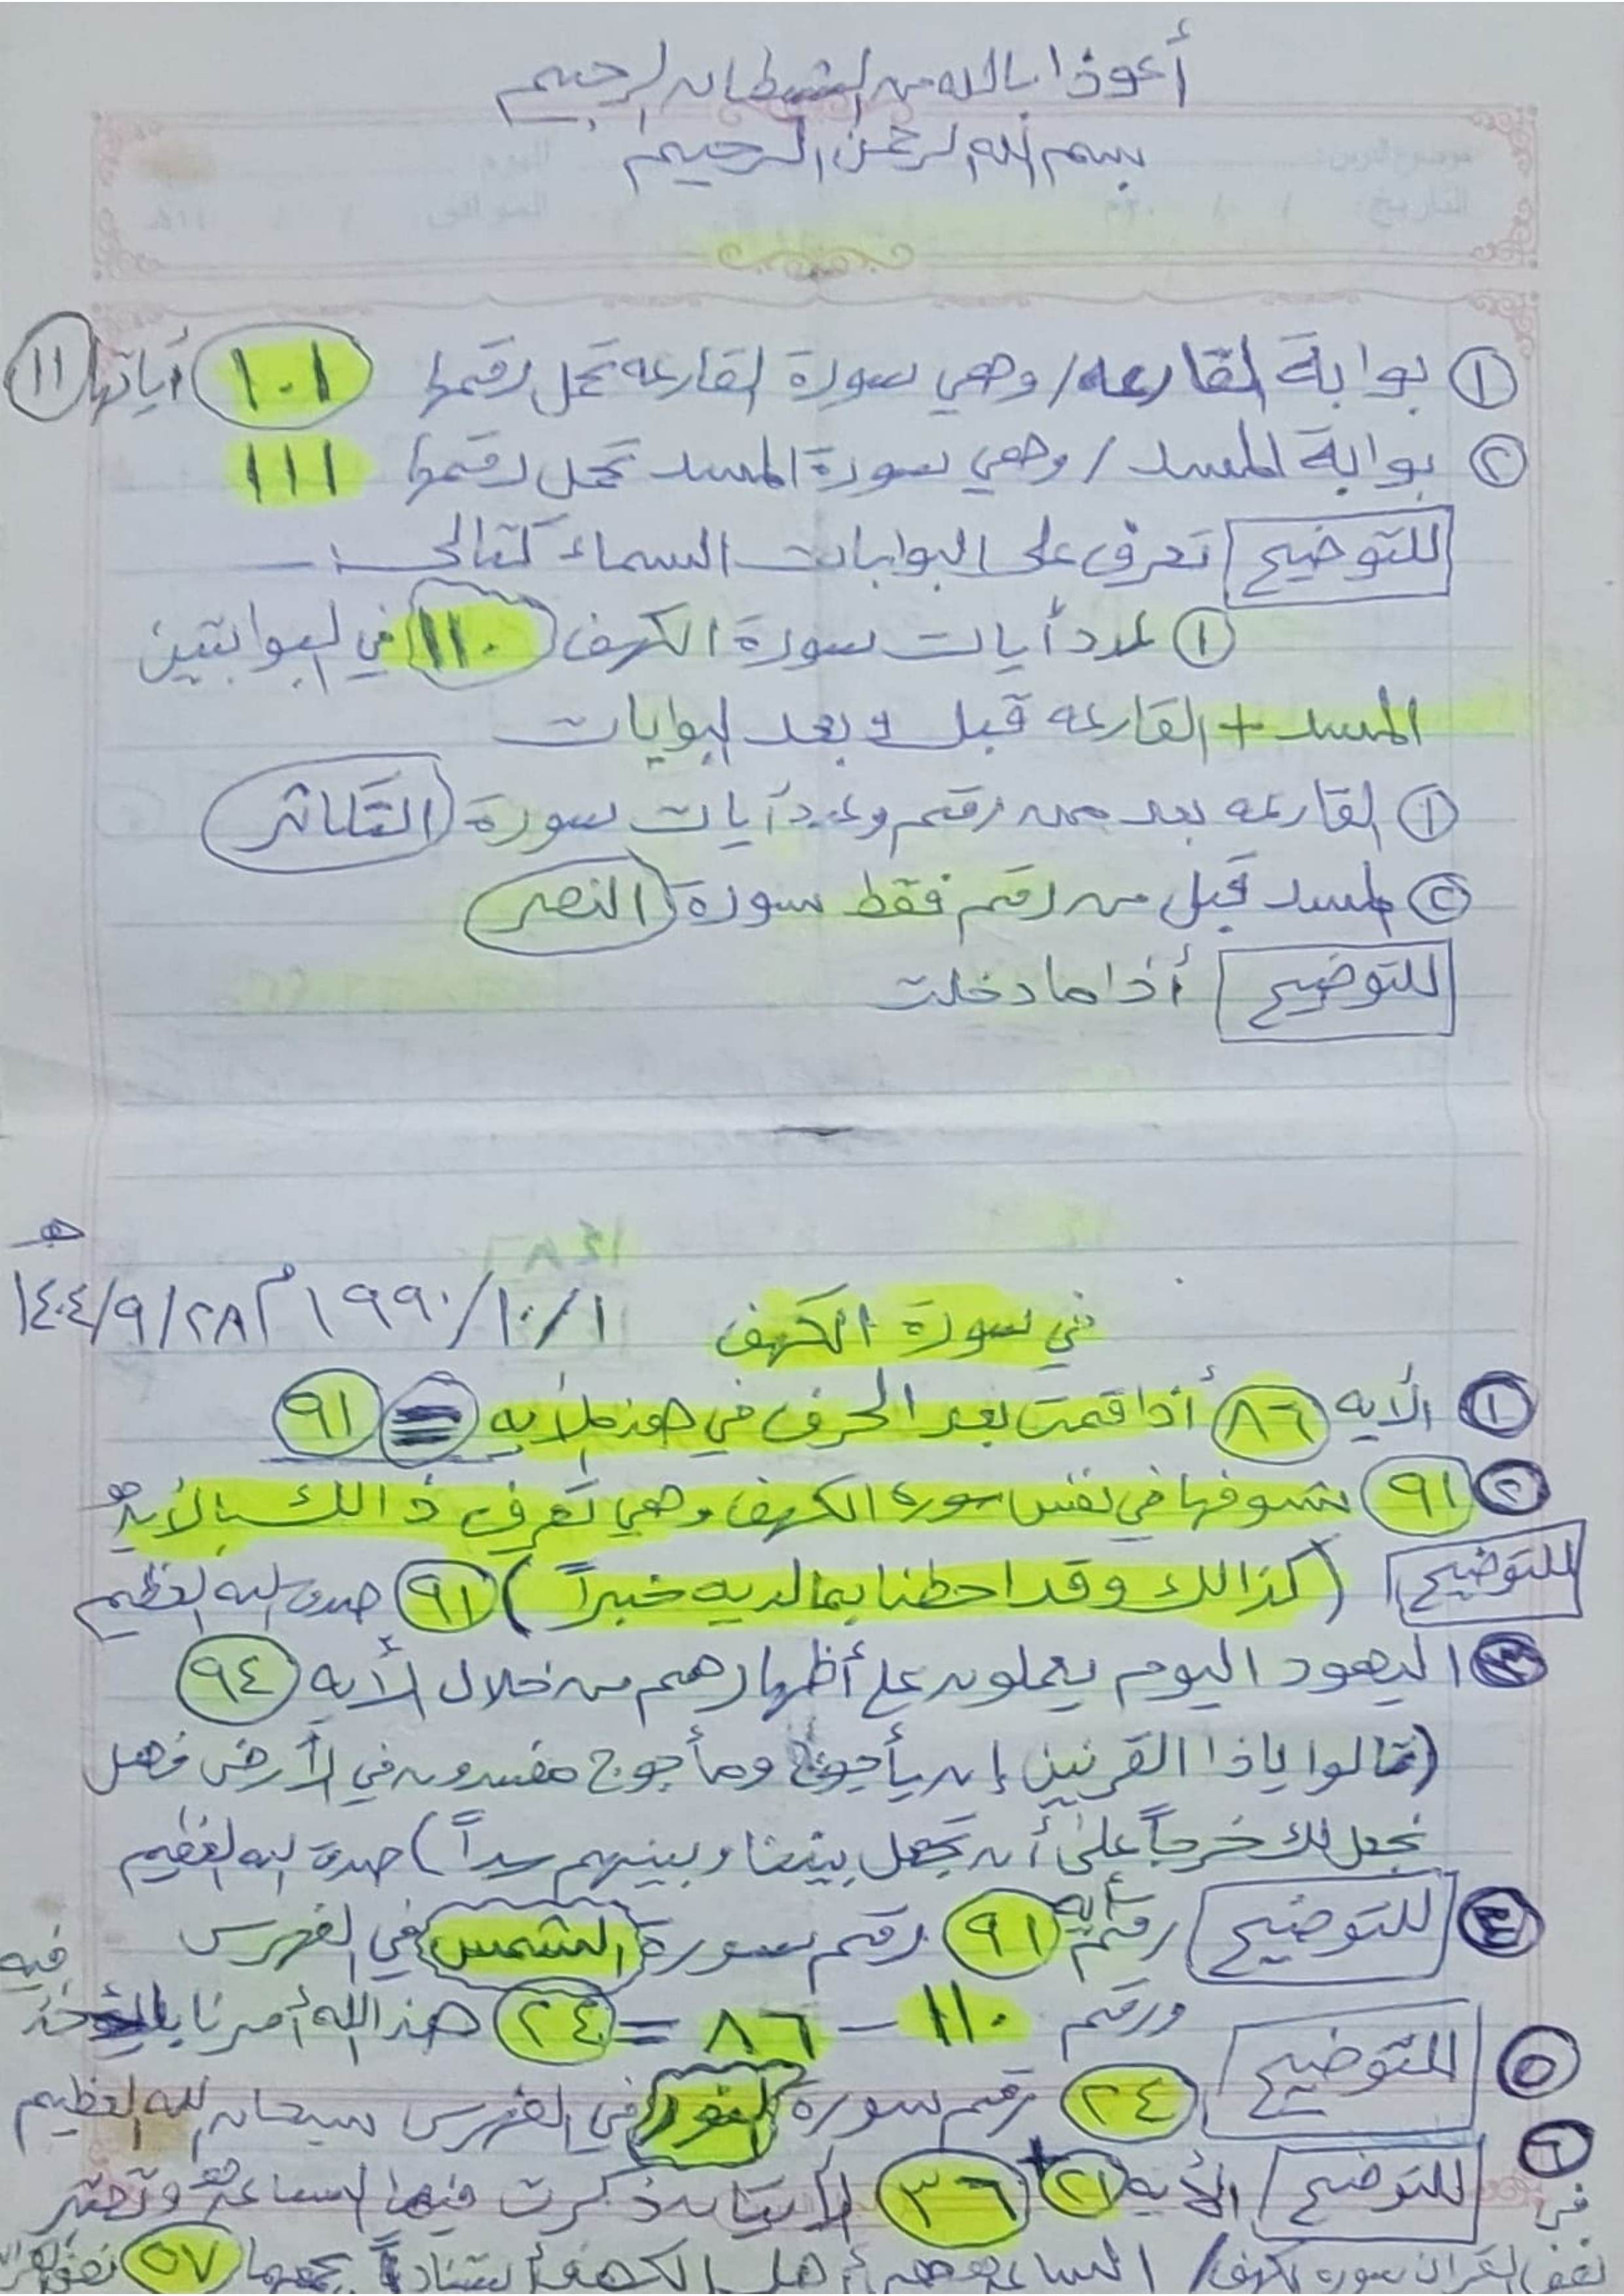 أعوذا بالله من الشيطان الرجيم
بسم الله الرحمن الرحيم
١ بوابة القارعه / وهي سورة القارعه تحمل رقمها ١٠١ أياتها ١١
٢ بوابة المسد / وهي سورة المسد تحمل رقمها ١١١
للتوضيح تعرف على البوابات السماء كتالي :ـ
١ عدد أيات سورة الكهف ١١٠ في البوابتين
المسد + القارعه قبل و بعد البوابات
١ القارعه بعد من رقم وعدد آيات سورة التكاثر
٢ المسد قبل من رقم فقط سورة النصر
للتوضيح أذا ما دخلت
في سورة الكهف ١/١٠/١٩٩٠م ٢٨/٩/١٤٠٤ هـ
١ الأيه ٨٦ أذا قمت بعد الحرف في هذه الأيه = ٩١
٢ ٩١ شوفها في نفس سورة الكهف وهي تعرف ذالك بالأيه
للتوضيح (كذالك وقد احطنا بما لديه خبراً) ٩١ صدق الله العظيم
٣ اليهود اليوم يعملون على أظهارهم من خلال الأيه ٩٤
(قالوا ياذا القرنين إن يأجوج ومأجوج مفسدون في الأرض فهل
نجعل لك خرجاً على أن تجعل بيننا وبينهم سداً) صدق الله العظيم
٤ للتوضيح رقم أيه ٩١ رقم سورة الشمس في الفهرس
٥ للتوضيح ورقم ١١٠ – ٨٦ = ٢٤ هذ الله أمرنا فيه
٢٤ رقم سورة النور في الفهرس سبحان الله العظيم
٦ للتوضيح الأيه ٢١ + ٣٦ الأيتان ذكرت فيها الساعة
نفس القران سورة الكهف / الساعة أهل الكهف ٥٧